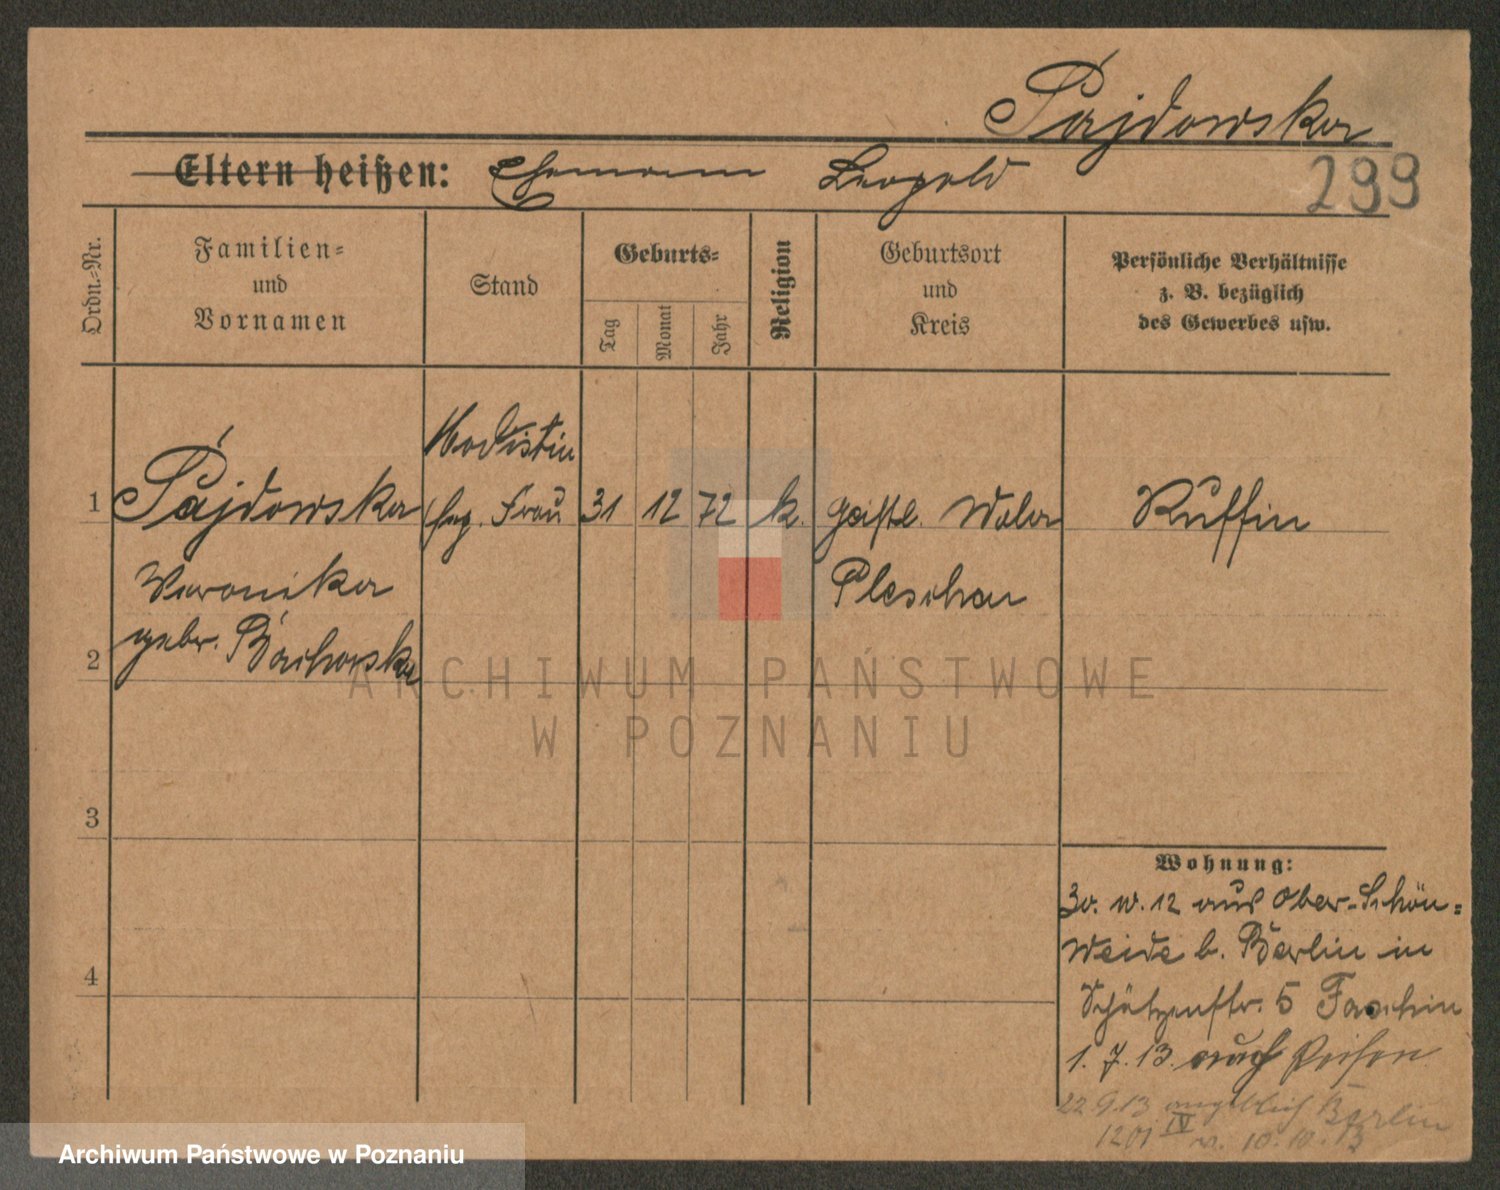 Pajdowska
Eltern heißen: Ehemann Leopold
299
Ordn.-Nr.
Familien-
und
Vornamen
Stand
Geburts-
Tag
Monat
Jahr
Religion
Geburtsort
und
Kreis
Persönliche Verhältnisse
z. B. bezüglich
des Gewerbes usw.
Modistin
1 Pajdowska Frau 31 12 72 k. Geistl. Wola Ruffin
Veronika Pleschen
2 gebr. Bachorska
3
4
Wohnung:
30. 10. 12 aus Ober-Schön-
weide b. Berlin in
Schützenstr. 5
1. 7. 13. auf Reisen
22 9 13 angeblich Berlin
1201 IV v. 10. 10. 13
ARCHIWUM PAŃSTWOWE
W POZNANIU
Archiwum Państwowe w Poznaniu